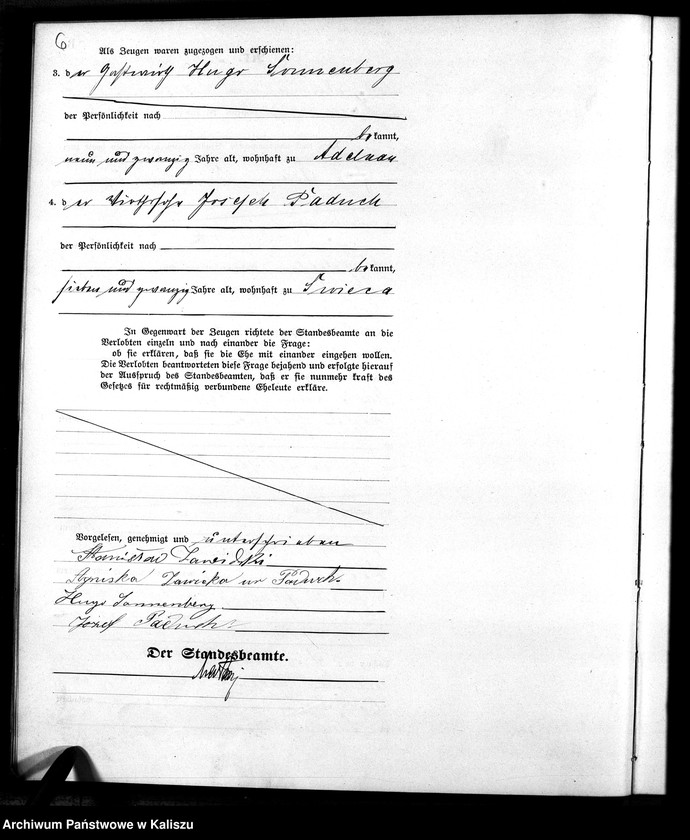 6
Als Zeugen waren zugezogen und erschienen:
3. der Gastwirth Hugo Sonnenberg
der Persönlichkeit nach
bekannt,
neun und zwanzig Jahre alt, wohnhaft zu Adelnau
4. der Wirthssohn Joseph Paduch
der Persönlichkeit nach
bekannt,
sieben und zwanzig Jahre alt, wohnhaft zu Swieca
In Gegenwart der Zeugen richtete der Standesbeamte an die
Verlobten einzeln und nach einander die Frage:
ob sie erklären, daß sie die Ehe mit einander eingehen wollen.
Die Verlobten beantworteten diese Frage bejahend und erfolgte hierauf
der Ausspruch des Standesbeamten, daß er sie nunmehr kraft des
Gesetzes für rechtmäßig verbundene Eheleute erkläre.
Vorgelesen, genehmigt und unterschrieben
Stanisław Zawidzki
Agniska Zawicka Paduch
Hugo Sonnenberg
Józef Paduch
Der Standesbeamte.
Archiwum Państwowe w Kaliszu